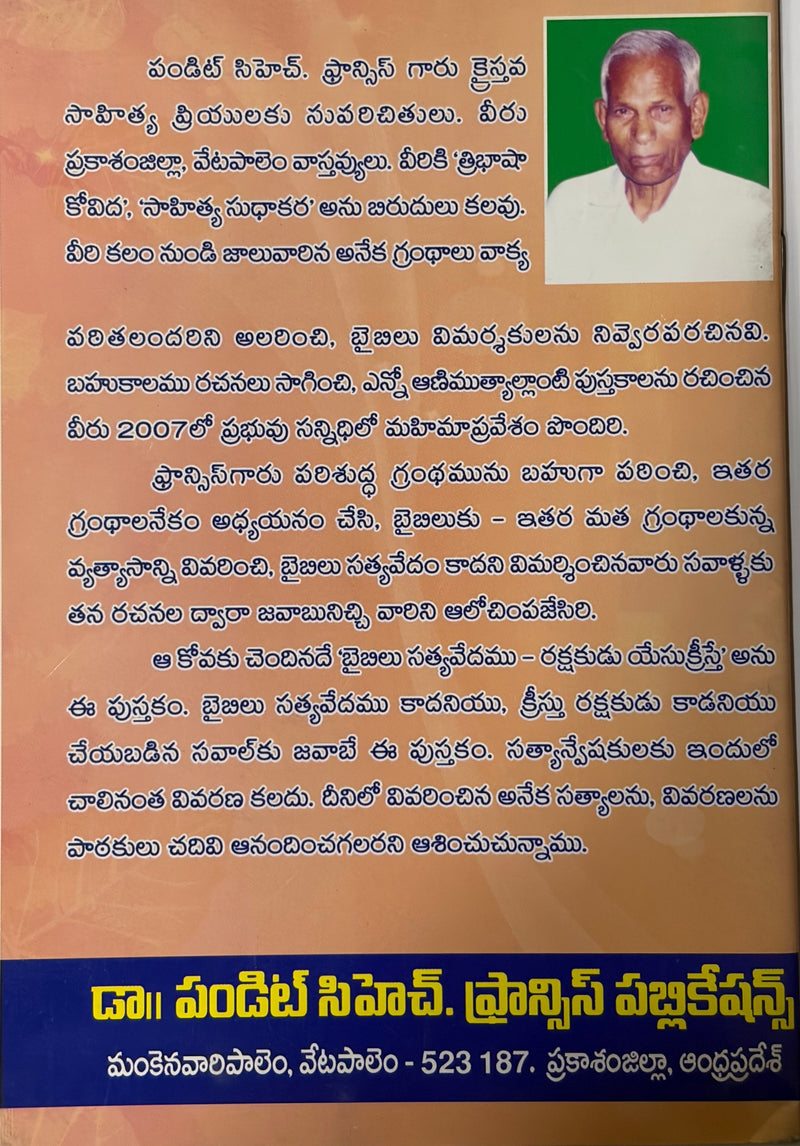 పండిట్ సిహెచ్. ఫ్రాన్సిస్ గారు క్రైస్తవ
సాహిత్య ప్రియులకు సుపరిచితులు. వీరు
ప్రకాశంజిల్లా, వేటపాలెం వాస్తవ్యులు. వీరికి 'త్రిభాషా
కోవిద', 'సాహిత్య సుధాకర' అను బిరుదులు కలవు.
వీరి కలం నుండి జాలువారిన అనేక గ్రంథాలు వాక్య
పఠితలందరిని అలరించి, బైబిలు విమర్శకులను నివ్వెరపరచినవి.
బహుకాలము రచనలు సాగించి, ఎన్నో ఆణిముత్యాల్లాంటి పుస్తకాలను రచించిన
వీరు 2007లో ప్రభువు సన్నిధిలో మహిమాప్రవేశం పొందిరి.
ఫ్రాన్సిస్‌గారు పరిశుద్ధ గ్రంథమును బహుగా పఠించి, ఇతర
గ్రంథాలనేకం అధ్యయనం చేసి, బైబిలుకు – ఇతర మత గ్రంథాలకున్న
వ్యత్యాసాన్ని వివరించి, బైబిలు సత్యవేదం కాదని విమర్శించినవారు సవాళ్ళకు
తన రచనల ద్వారా జవాబునిచ్చి వారిని ఆలోచింపజేసిరి.
ఆ కోవకు చెందినదే 'బైబిలు సత్యవేదము – రక్షకుడు యేసుక్రీస్తే' అను
ఈ పుస్తకం. బైబిలు సత్యవేదము కాదనియు, క్రీస్తు రక్షకుడు కాడనియు
చేయబడిన సవాల్‌కు జవాబే ఈ పుస్తకం. సత్యాన్వేషకులకు ఇందులో
చాలినంత వివరణ కలదు. దీనిలో వివరించిన అనేక సత్యాలను, వివరణలను
పాఠకులు చదివి ఆనందించగలరని ఆశించుచున్నాము.
డా॥ పండిట్ సిహెచ్. ఫ్రాన్సిస్ పబ్లికేషన్స్
మంకెనవారిపాలెం, వేటపాలెం - 523 187. ప్రకాశంజిల్లా, ఆంధ్రప్రదేశ్